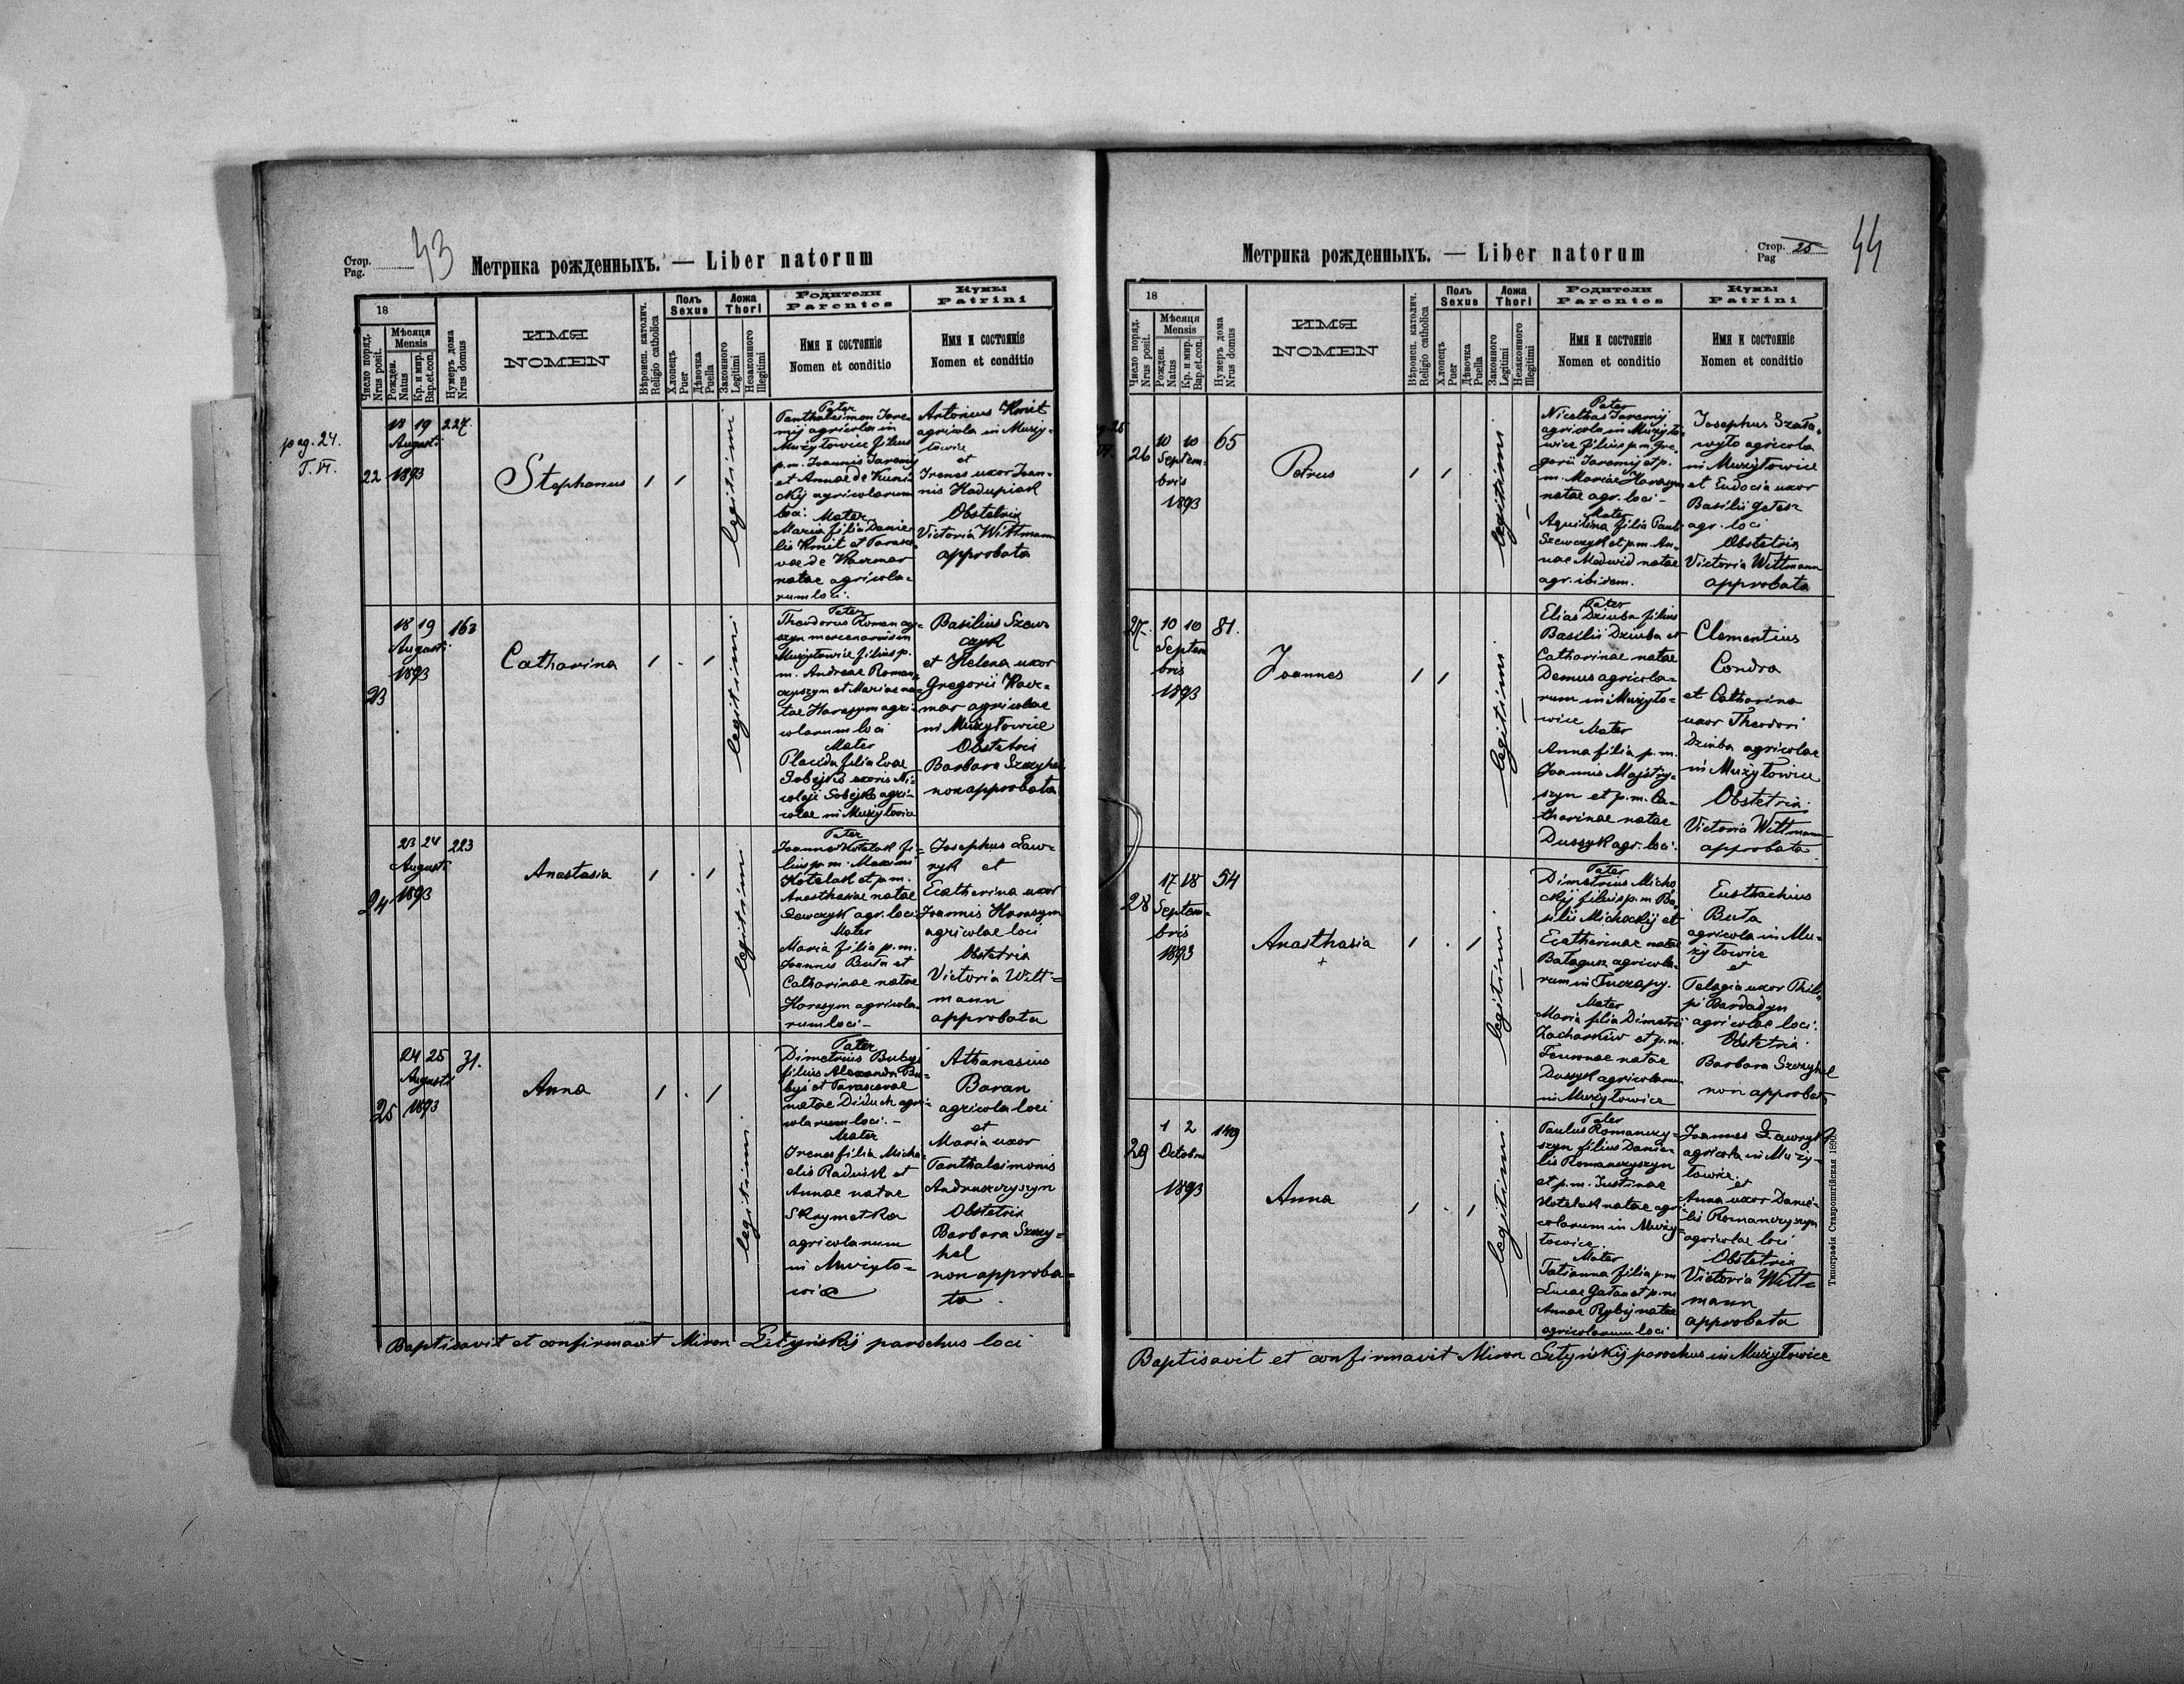 Стор.
Pag.
43
Метрика рожденныхъ. — Liber natorum
18
Число поряд.
Nrus posit.
Мѣсяця
Mensis
Рожден.
Natus
Кр. и мир.
Bap.et.con.
Нумеръ дома
Nrus domus
ИМЯ
NOMEN
Вѣроисп. католич.
Religio catholica
Полъ
Sexus
Хлопецъ
Puer
Дѣвочка
Puella
Ложа
Thori
Законного
Legitimi
Незаконного
Illegitimi
Родители
Parentes
Имя и состояніе
Nomen et conditio
Кумы
Patrini
Имя и состояніе
Nomen et conditio
pag. 24.
T. VI.
22
18 19
Augusti
1893
227.
Stephanus
legitimi
Pater
Panthaleimon Jare-
mij agricola in
Mużyłowice filius
p.m. Joannis Jaremij
et Annae de Kuni-
ckij agricolarum
loci. Mater
Maria filia Danie-
lis Kmit et Parasce-
vae de Kaczmar
natae agricola-
rum loci.
Antonius Kmit
agricola in Muży-
łowice
et
Irenes uxor Joan-
nis Hadupiak
Obstetrix
Victoria Wittmann
approbata
23
18 19
Augusti
1893
163
Catharina
legitimi
Pater
Theodorus Roman czy-
szyn mercenarius in
Mużyłowice filius p.
m. Andreae Roman-
czyszyn et Mariae na-
tae Harasym agri-
colarum loci
Mater
Placida filia Evae
Sobejko uxoris Ni-
colaji Sobejko agri-
colae in Mużyłowice
Basilius Szew-
czyk
et Helena uxor
Gregorii Kacz-
mar agricolae
in Mużyłowice
Obstetrix
Barbara Szczyhel
non approbata
24
23 24
Augusti
1893
223
Anastasia
legitimi
Pater
Joannes Kotelak fi-
lius p.m. Maximi
Kotelak et p.m.
Anasthasiae natae
Szewczyk agr. loci
Mater
Maria filia p.m.
Joannis Buta et
Catharinae natae
Harasym agricola-
rum loci -
Josephus Ław-
ryk et
Ecatherina uxor
Joannis Harasym
agricolae loci
Obstetrix
Victoria Witt-
mann
approbata
25
24 25
Augusti
1893
31.
Anna
legitimi
Pater
Dimetrius Bubys
filius Alexandri Bu-
bys et Parascevae
natae Diduch agri-
colarum loci. -
Mater
Irenes filia Micha-
elis Radwik et
Annae natae
Skrymetka
agricolarum
in Mużyło-
wice
Athanasius
Baran
agricola loci
et
Maria uxor
Panthaleimonis
Andruszczyszyn
Obstetrix
Barbara Szczy-
hel
non approba-
ta.
Baptisavit et confirmavit Miron Łetyńskij parochus loci
Метрика рожденныхъ. — Liber natorum
Стор.
Pag
25
44
18
Число поряд.
Nrus posit.
Мѣсяця
Mensis
Рожден.
Natus
Кр. и мир.
Bap.et.con.
Нумеръ дома
Nrus domus
ИМЯ
NOMEN
Вѣроисп. католич.
Religio catholica
Полъ
Sexus
Хлопецъ
Puer
Дѣвочка
Puella
Ложа
Thori
Законного
Legitimi
Незаконного
Illegitimi
Родители
Parentes
Имя и состояніе
Nomen et conditio
Кумы
Patrini
Имя и состояніе
Nomen et conditio
26
10 10
Septem-
bris
1893
65
Petrus
legitimi
Pater
Nicethas Jaremij
agricola in Mużyło-
wice filius p.m. Gre-
gorii Jaremij et p.
m. Mariae Harasym
natae agr. loci -
Mater
Aquilina filia Pauli
Szewczyk et p.m. An-
nae Medwid natae
agr. ibidem.
Josephus Szata-
wyło agricola
in Mużyłowice
et Eudocia uxor
Basilii Getesz
agr. loci
Obstetrix
Victoria Wittmann
approbata
27.
10 10
Septem
bris
1893
81.
Joannes
legitimi
Pater
Elias Dziuba filius
Basilii Dziuba et
Catharinae natae
Demus agricola-
rum in Mużyło-
wice
Mater
Anna filia p.m.
Joannis Majstry-
szyn et p.m. Ca-
tharinae natae
Dussyk agr. loci.
Clementius
Condra
et Catharina
uxor Theodori
Dziuba agricolae
in Mużyłowice
Obstetrix
Victoria Wittmann
approbata
28
17 18
Septem-
bris
1893
54
Anasthasia
+
legitimi
Pater
Dimetrius Micho-
ckij filius p.m Ba-
silii Michockij et
Ecatherinae natae
Batagusz agricola-
rum in Tuczapy.
Mater
Maria filia Dimetrii
Zacharkiw et p.m.
Feuronae natae
Dussyk agricolarum
in Mużyłowice
Eusthachius
Buta
agricola in Mu-
żyłowice
et
Pelagia uxor Phili-
pi Bardadyn
agricolae loci.
Obstetrix
Barbara Szczyhel
non approbata
29
1 2
Octobris
1893
149
Anna
legitimi
Pater
Paulus Romanczy-
szyn filius Danie-
lis Romanczyszyn
et p.m. Justinae
Kotelak natae agri-
colarum in Muży-
łowice.
Mater
Tatianna filia p.m
Lucae Gałan et p.m
Annae Rybij natae
agricolarum loci
Joannes Ławryk
agricola in Muży-
łowice
et
Anna uxor Danie-
lis Romanczyszyn
agricolae loci
Obstetrix
Victoria Witt-
mann
approbata
Baptisavit et confirmavit Miron Łetyńskij parochus in Mużyłowice
Типографія Ставропигійская 1890.